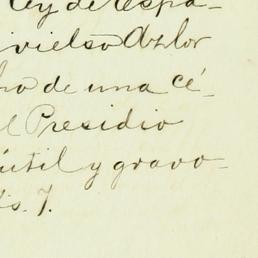 Rey de Espa-
Virvielso Azlor
ho de una cé-
l Presidio
útil y gravo-
ts. 7.